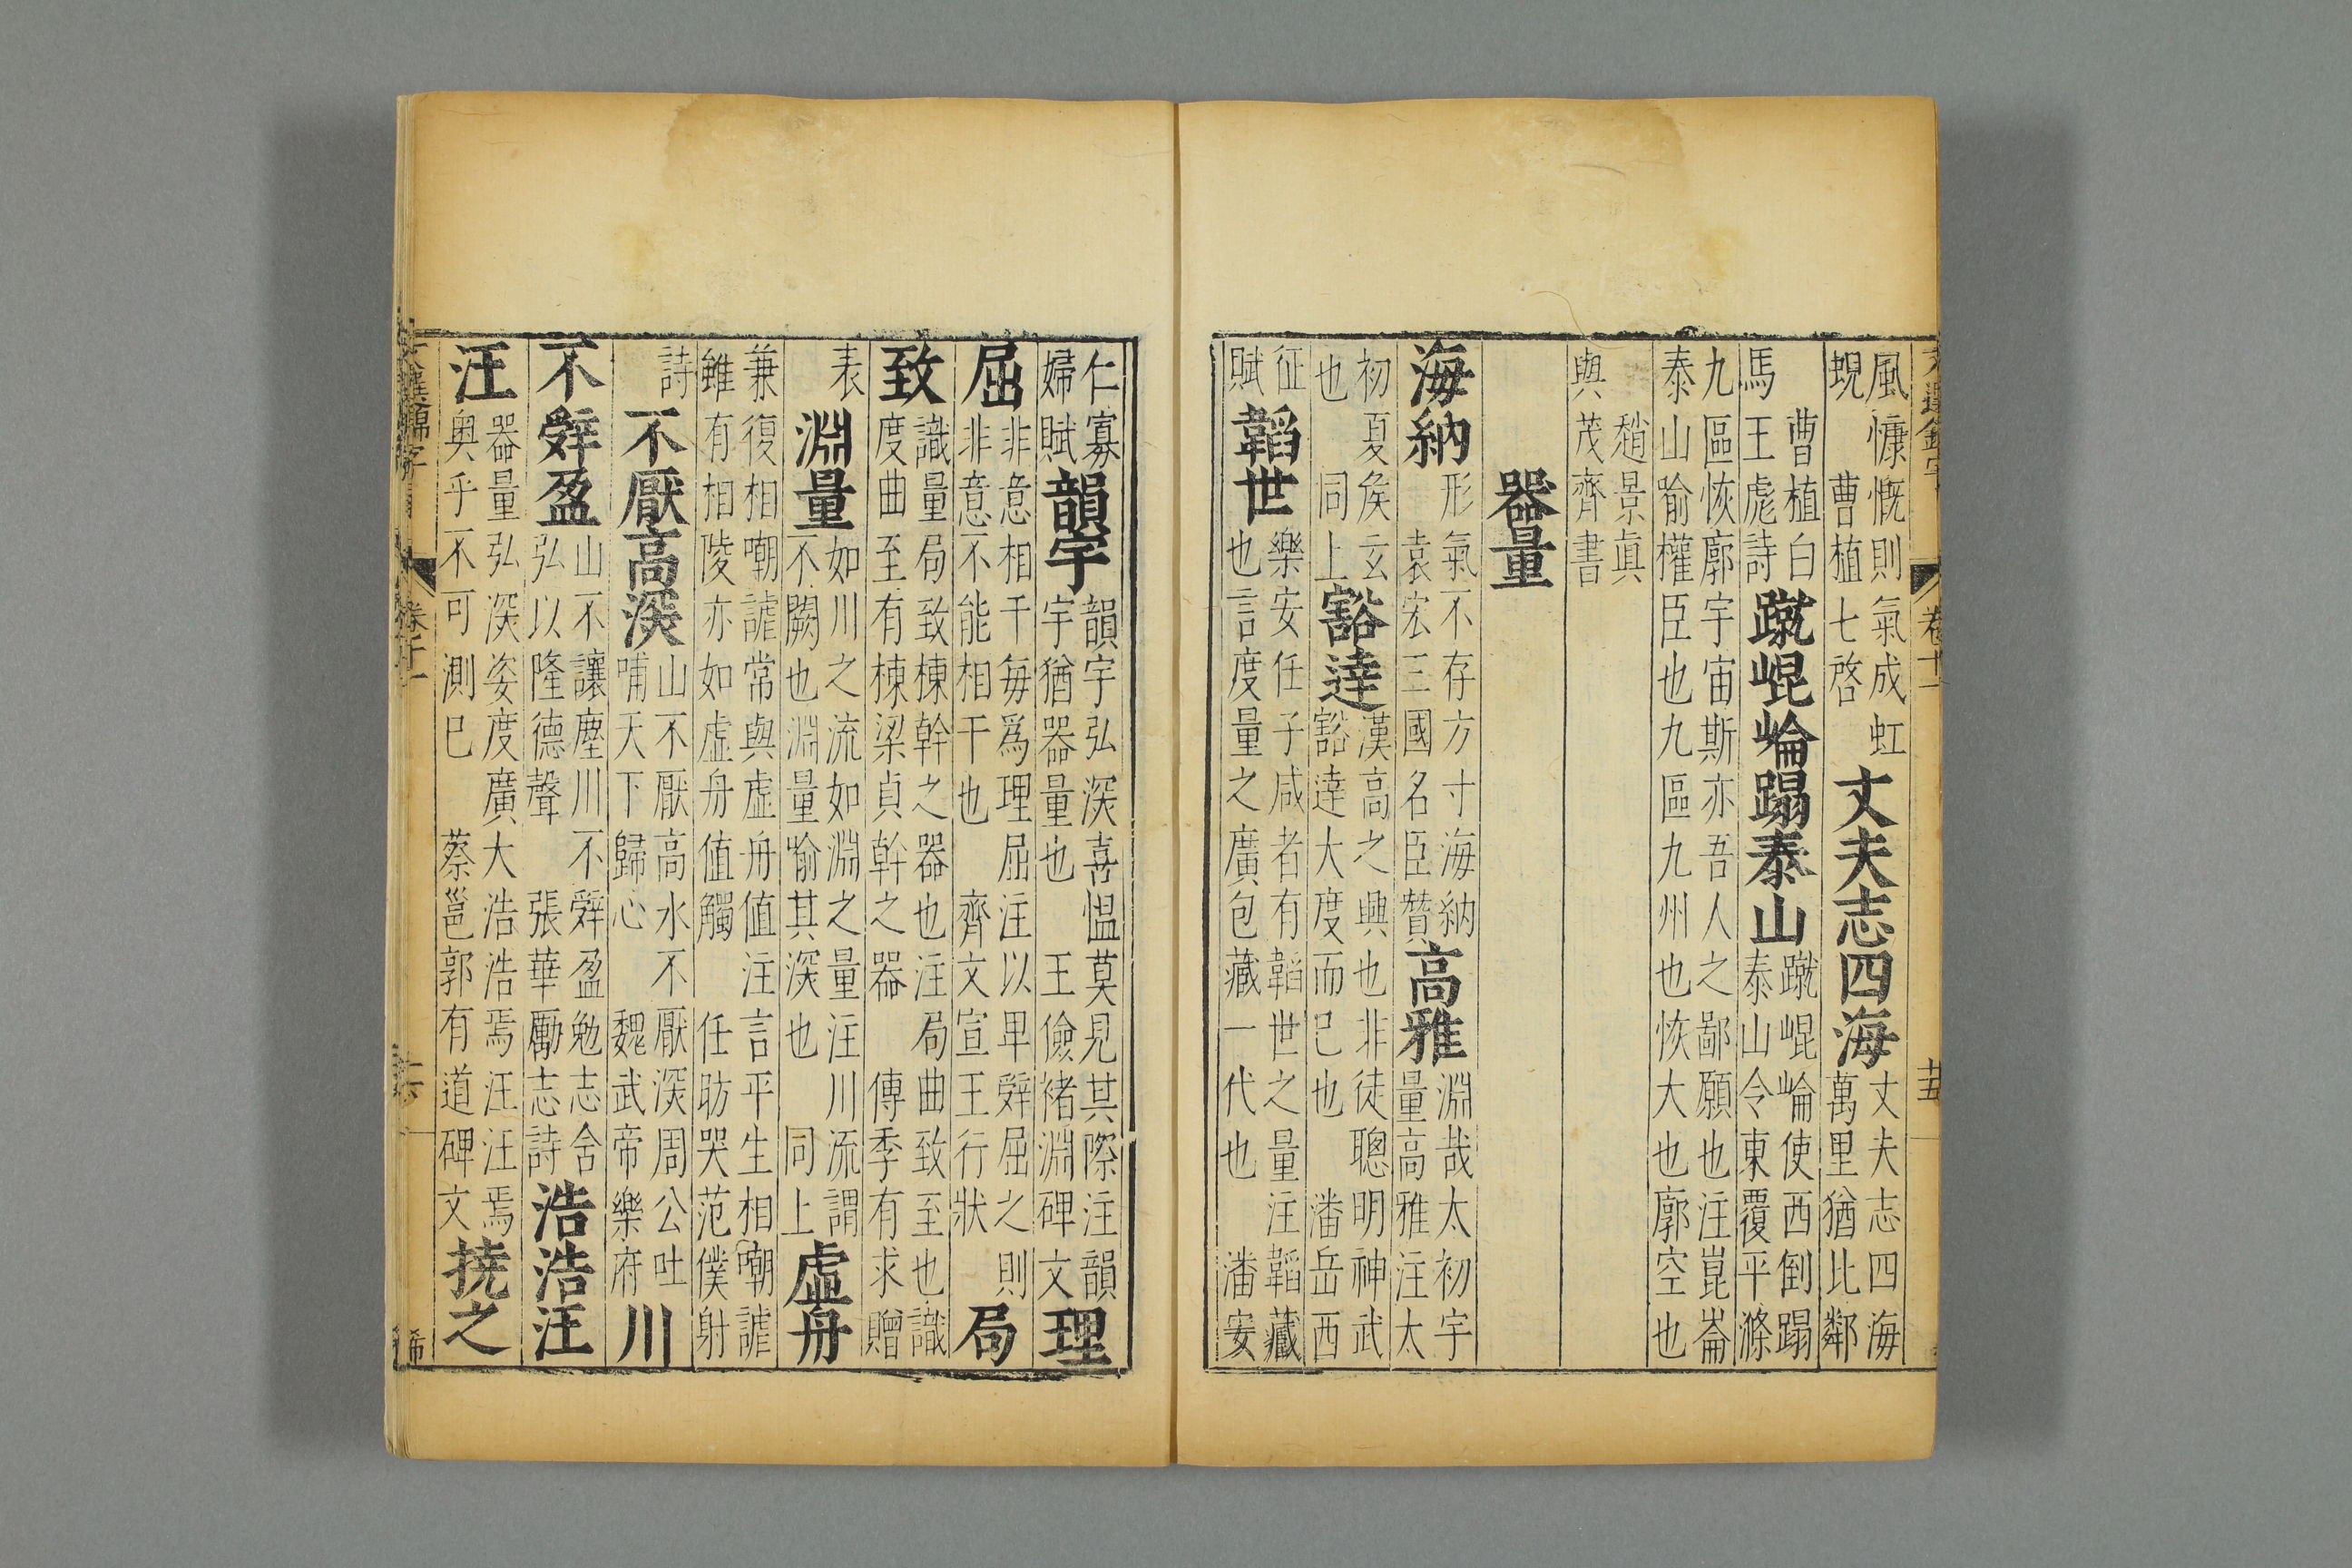 文選錦字 卷十一 十五
風慷慨則氣成虹蜺 曹植七啓 丈夫志四海 丈夫志四海萬里猶比鄰
曹植白馬王彪詩 蹴崐崘蹋泰山 蹴崐崘使西倒蹋泰山令東覆平滌
九區恢廓宇宙斯亦吾人之鄙願也注崑崙泰山喻權臣也九區九州也恢大也廓空也
趙景真與茂齊書
器量
海納 形氣不存方寸海納 袁宏三國名臣贊 高雅 淵哉太初宇量高雅注太
初夏矦玄也 同上 豁達 漢高之興也非徒聰明神武豁達大度而已也 潘岳西
征賦 韜世 樂安任子咸者有韜世之量注韜藏也言度量之廣包藏一代也 潘安
仁寡婦賦 韻宇 韻宇弘深喜愠莫見其際注韻宇猶器量也 王儉褚淵碑文 理
屈 非意相干每爲理屈注以卑辤屈之則非意不能相干也 齊文宣王行狀 局
致 識量局致棟幹之器也注局曲致至也識度曲至有棟梁貞幹之器 傅季有求贈
表 淵量 如川之流如淵之量注川流謂不闕也淵量喻其深也 同上 虛舟
兼復相嘲謔常與虛舟值注言平生相嘲謔雖有相陵亦如虛舟值觸 任昉哭范僕射
詩 不厭高深 山不厭高水不厭深周公吐哺天下歸心 魏武帝樂府 川
不辤盈 山不讓塵川不辤盈勉志舍弘以隆德聲 張華勵志詩 浩浩汪
汪 器量弘深姿度廣大浩浩焉汪汪焉奥乎不可測已 蔡邕郭有道碑文 撓之
文選錦字 卷十一 十六